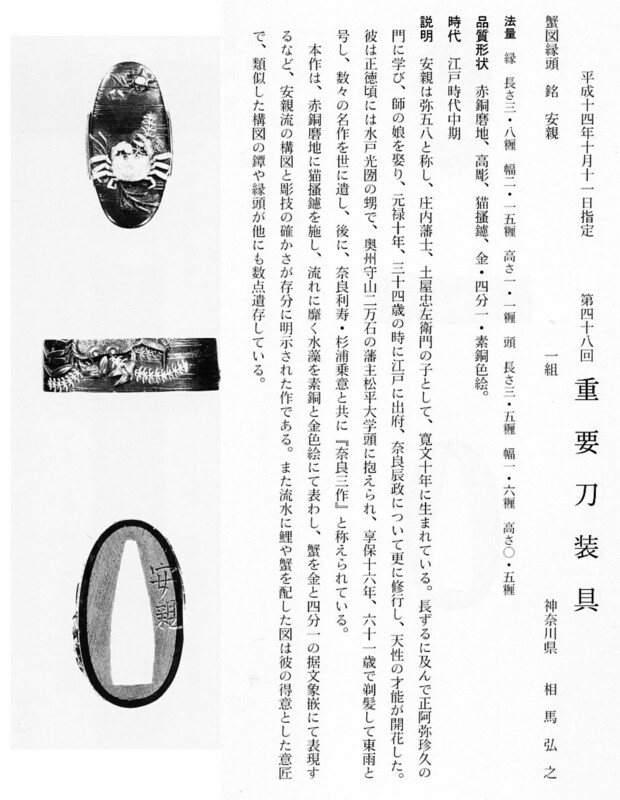 平成十四年十月十一日指定　第四十八回　重要刀装具
蟹図縁頭　銘　安親　一組　神奈川県　相馬弘之
法量　縁　長さ三・八糎　幅二・一五糎　高さ一・一糎　頭　長さ三・五糎　幅一・六糎　高さ〇・五糎
品質形状　赤銅磨地、高彫、猫搔鑢、金・四分一・素銅色絵。
時代　江戸時代中期
説明　安親は弥五八と称し、庄内藩士、土屋忠左衛門の子として、寛文十年に生まれている。長ずるに及んで正阿弥珍久の
門に学び、師の娘を娶り、元禄十年、三十四歳の時に江戸に出府、奈良辰政について更に修行し、天性の才能が開花した。
彼は正徳頃には水戸光圀の甥で、奥州守山二万石の藩主松平大学頭に抱えられ、享保十六年、六十一歳で剃髪して東雨と
号し、数々の名作を世に遺し、後に、奈良利寿・杉浦乗意と共に『奈良三作』と称えられている。
本作は、赤銅磨地に猫搔鑢を施し、流れに靡く水藻を素銅と金色絵にて表わし、蟹を金と四分一の据文象嵌にて表現す
るなど、安親流の構図と彫技の確かさが存分に明示された作である。また流水に鯉や蟹を配した図は彼の得意とした意匠
で、類似した構図の鐔や縁頭が他にも数点遺存している。
安親